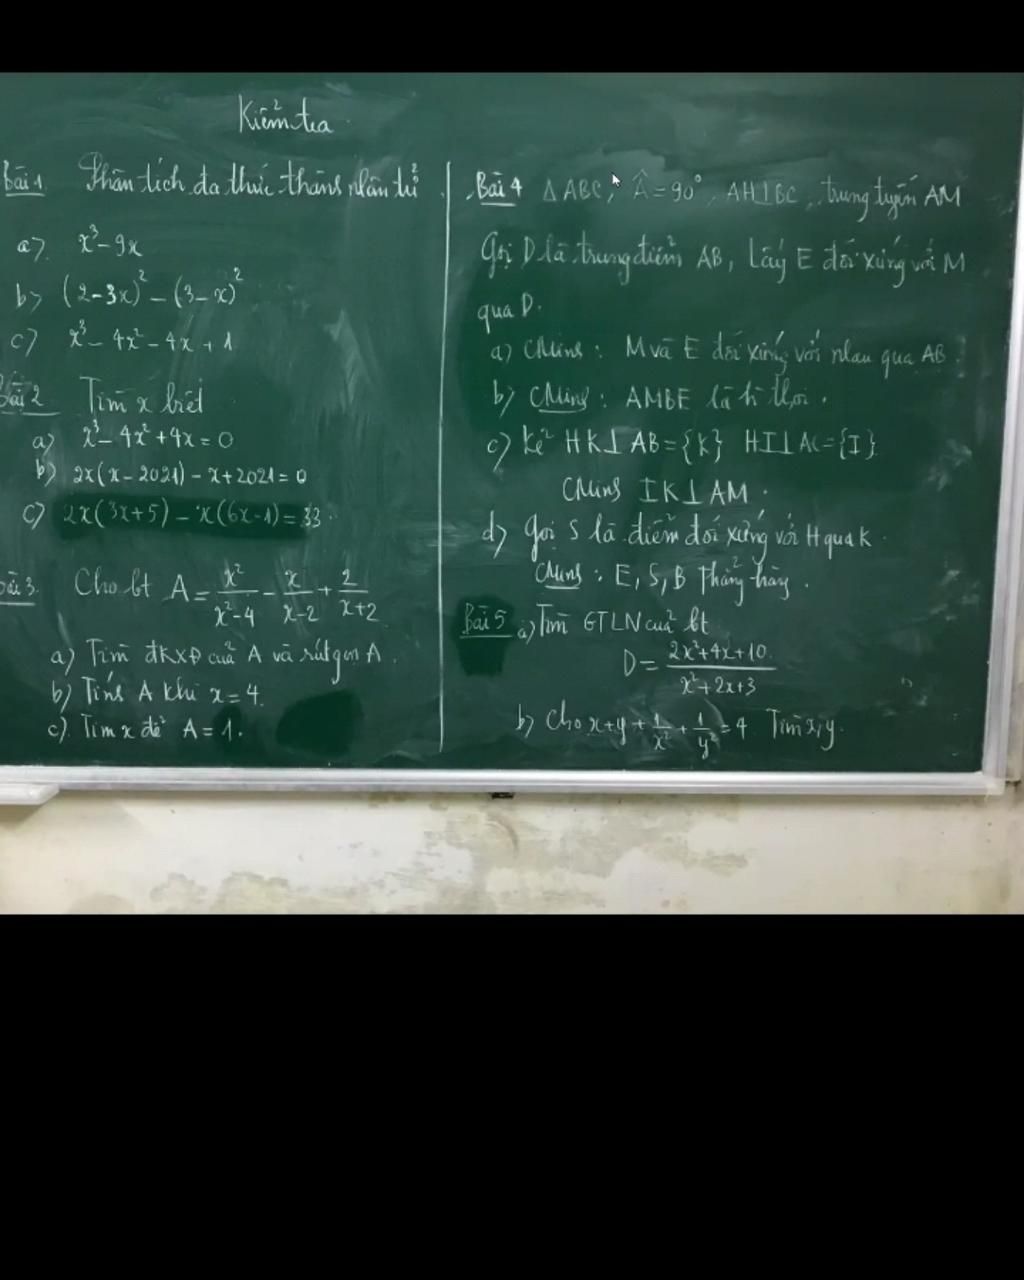 Kiểm tra
Bài 1 Phân tích đa thức thành nhân tử
a) x³ - 9x
b) (2-3x)² - (3-x)²
c) x³ - 4x² - 4x + 1
Bài 2 Tìm x biết
a) x³ - 4x² + 4x = 0
b) 2x(x - 2021) - x + 2021 = 0
c) 2x(3x+5) - x(6x-1) = 33
Bài 3. Cho bt A = x²/(x²-4) - x/(x-2) + 2/(x+2)
a) Tìm đKXĐ của A và rút gọn A.
b) Tính A khi x = 4.
c) Tìm x để A = 1.
Bài 4 Δ ABC, Â = 90°, AH⊥BC, trung tuyến AM
Gọi D là trung điểm AB, Lấy E đối xứng với M
qua D.
a) CMinh: M và E đối xứng với nhau qua AB.
b) CMinh: AMBE là h thoi.
c) Kẻ HK⊥AB={K} HI⊥AC={I}.
CMinh IK⊥AM.
d) Gọi S là điểm đối xứng với H qua K.
CMinh: E, S, B thẳng hàng.
Bài 5 a) Tìm GTLN của bt
D = (2x²+4x+10)/(x²+2x+3)
b) Cho x+y+1/x²+1/y²=4 Tìm x,y.